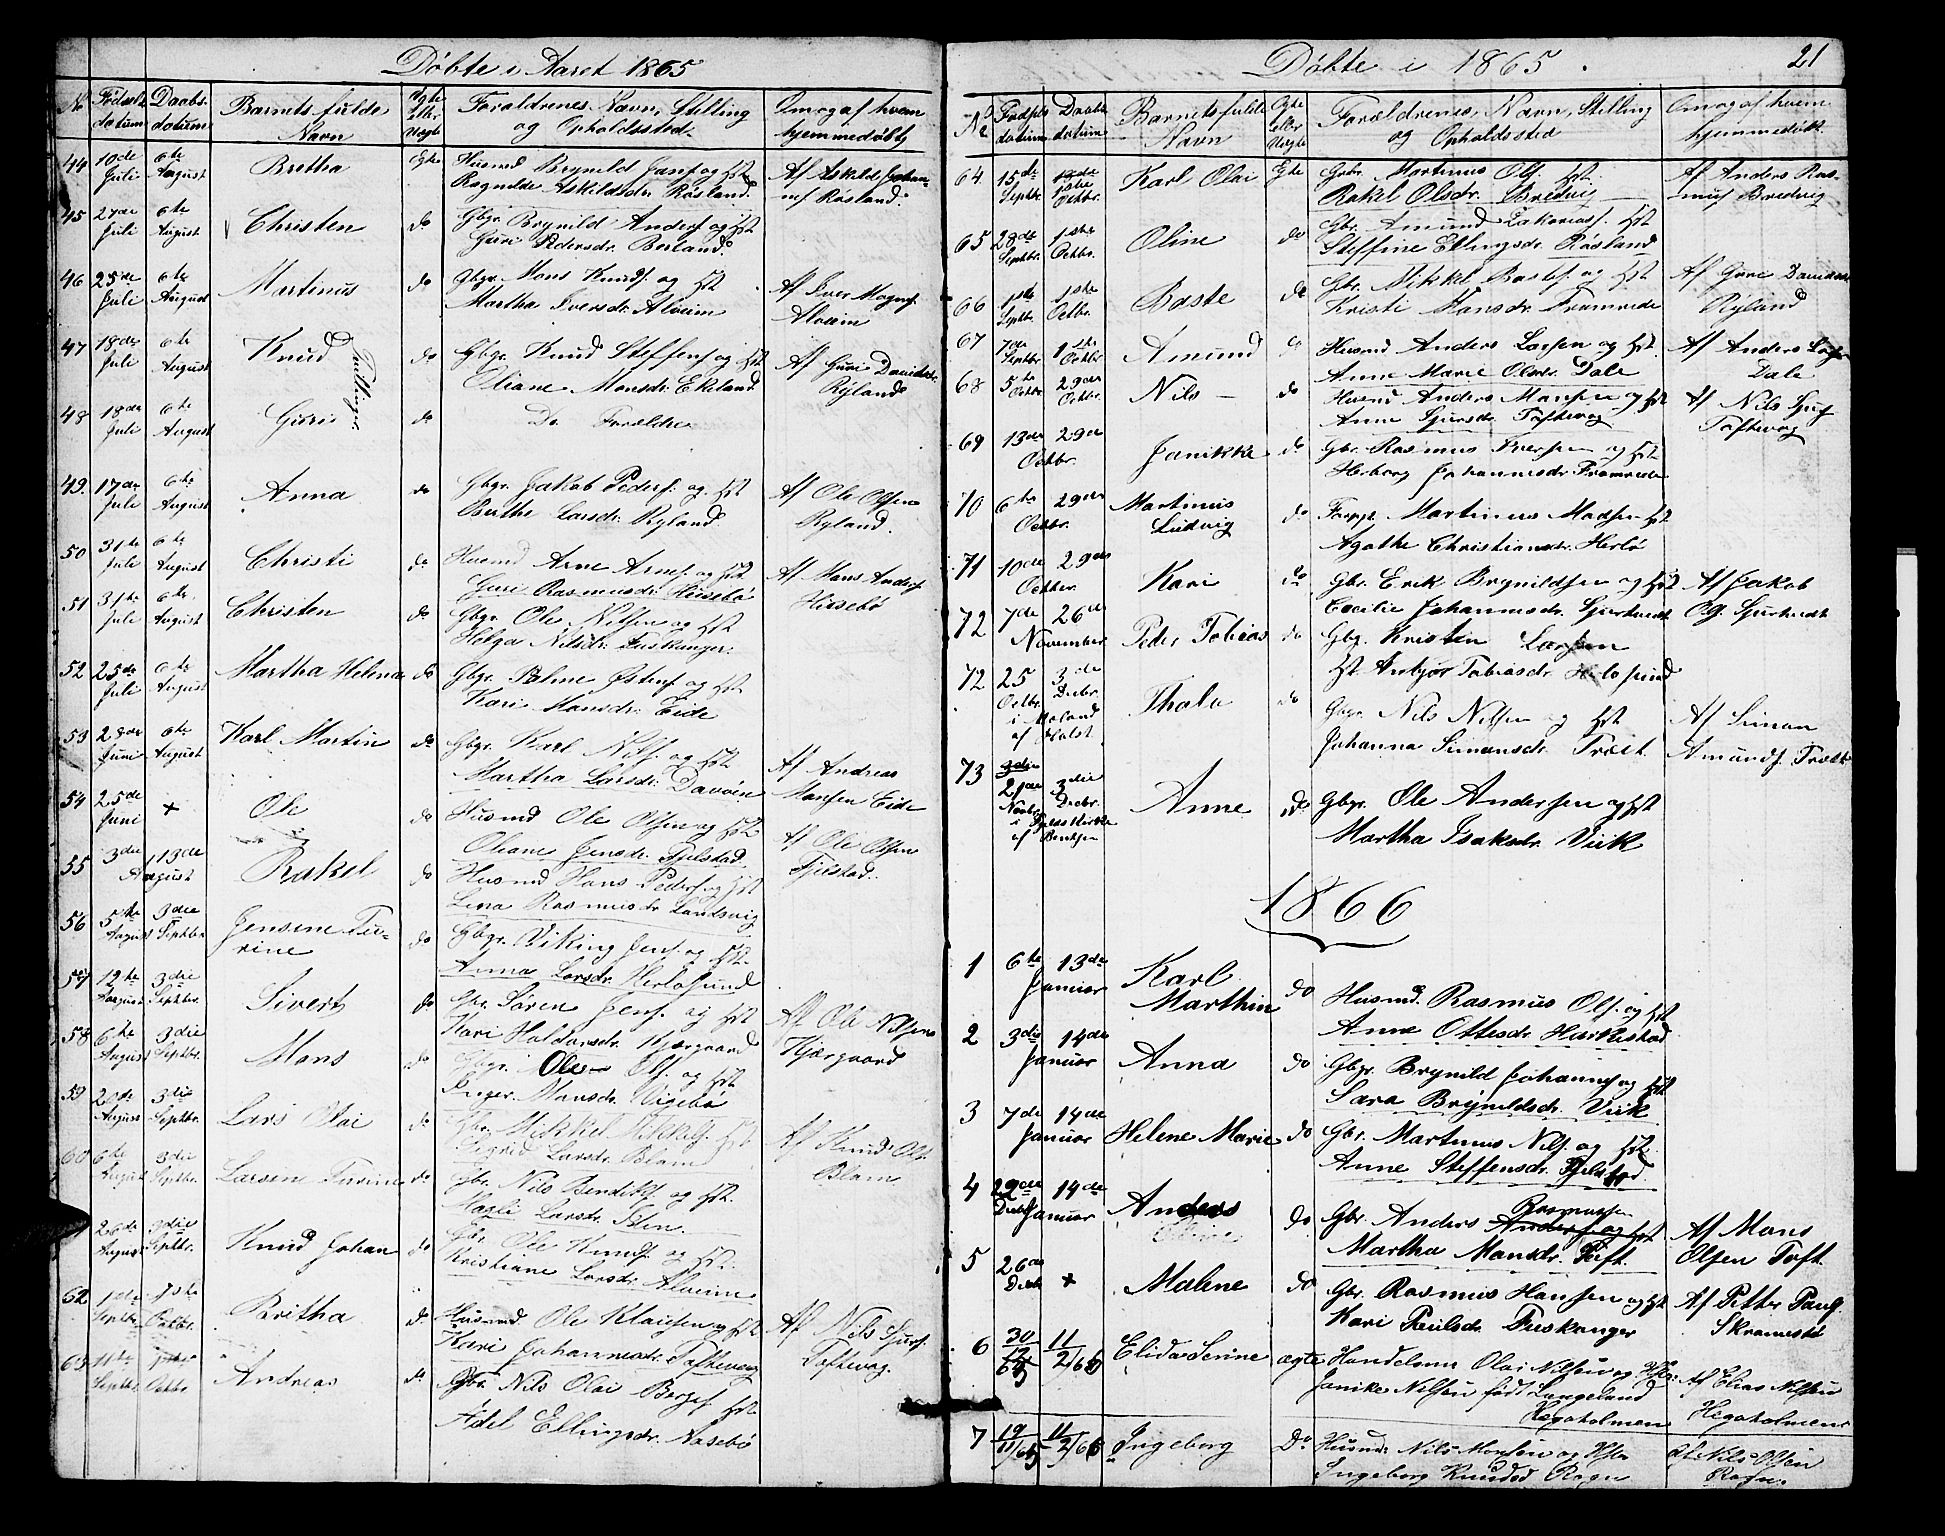 Døbte i Aaret 1865
No Fødsels datum Daabs datum Barnets fulde Navn Egte eller Uegte Forældrenes Navn, Stilling og Opholdssted Om og af hvem hjemmedøbt
44 10de Juli 6te August Bretha Egte Husmd Brynild Jansf og Hst
Ragnilde Askildsdr. Røsland. Af Askild Johannesf Røsland.
45 27de Juli 6te August Christen do Gbgr. Brynild Andersf og Hst
Guri Pedersdr. Berland.
46 25de Juli 6te August Martinus do Gbgr. Mons Knudsf. og Hst
Martha Iversdr. Alveim Af Iver Magnsf. Alveim
47 18de Juli 6te August Knud Tvillinger do Gbgr. Knud Steffensf og Hst
Oliane Monsdr. Ekland Af Guri Davidsdr. Ryland
48 18de Juli 6te August Guri do Do Forældre
49. 17de Juli 6te August Anna do Gbgr. Jakob Pedersf. og Hst
Brithe Larsdr. Ryland. Af Ole Olsen Ryland.
50 31te Juli 6te August Christi do Husmd Arne Arnesf. og Hst
Guri Rasmusdr. Hissebø Af Hans Andersf Hissebø
51 31te Juli 6te August Christen do Gbgr. Ole Nilsen og Hst
Helga Nilsdr. Fuskanger.
52 25de Juli 6te August Martha Helena do Gbgr. Østensf og Hst
Kari Monsdr. Eide
53 28de Juni 6te August Karl Martin do Gbgr. Karl Nilsf. og Hst
Martha Larsdr. Davøen Af Andreas Hansen Eide
54 25de Juni + Ole do Husmd Ole Olsen og Hst
Oliane Jensdr. Fjelstad Af Ole Olsen Fjelstad.
55 3de 13de August Rakel do Husmd Hans Pedersf og Hst
Lina Rasmusdr Landsvig
56 5te August 3die Septbr Jensene Turine do Gbgr. Viking Jensf. og Hst.
Anna Larsdr. Herløsund
57 12te August 3die Septbr. Sivert do Gbr. Søren Jensf. og Hst
Kari Haldorsdr. Kjærgaard Af Ole Nilsen Kjærgaard
58 6te August 3die Septbr. Mons do Gbgr. Ole Olsf. og Hst
Inger Monsdr. Vigebø
59 20de August 3die Septbr. Lars Olai do Gbr. Mikkel Mikkelsf. Hst
Sigrid Larsdr. Blom Af Knud Ols Blom
60 6te August 3die Septbr. Larsene Turine do Gbr. Nils Bendiksf. og Hst.
Magli Larsdr. Sten.
26de August 3die Septbr. Knud Johan do Gbr. Ole Knudsf. og Hst.
Kristiane Larsdr. Alveim
62 1ste Septbr. 1ste Octbr. Britha do Husmd Ole Klausen og Hst
Kari Johannesdr. Toftevag Af Nils Sjursf. Toftevag.
63 11te Septbr. 1ste Octbr Andreas do Gbr. Nils Olai Bergesf. Hst
Adel Ellingsdr. Aasebø
Døbte i 1865. 21
No Fødsels datum Daabs datum Barnets fulde Navn Egte eller Uegte Forældrenes Navn, Stilling og Opholdssted Om og af hvem hjemmedøbt.
64 15de Septbr. 1ste Octbr. Karl Olai Egte Gbr. Martinus Olsf. Hst.
Rakel Olsdr. Bredvig Af Anders Rasmusf Bredvig
65 28de Septbr. 1ste Octbr. Oline do Gbr. Amund Zakariasf. Hst
Steffine Ellingsdr. Røsland
66 1ste Septbr. 1ste Octbr. Baste do Gbr. Mikkel Bastesf. og Hst
Kristi Hansdr. Framrede Af Guri Davidsdr Ryland
67 7de Septbr 1ste Octbr Amund do Husmd Anders Larsen og Hst.
Anne Marie Olsdr. Dale Af Anders Larsen Dale.
68 5te Octbr. 29de Octbr. Nils do Husmd Anders Monsen og Hst
Anne Sjursdr. Toftevag Af Nils Sjursf Toftevag
69 13de Octbr. 29de Janikke do Gbr. Rasmus Iversen og Hst.
Herborg Johannesdr. Framrede
70 6te Octbr. 29de Martinus Ludvig do Forpr. Martinus Madsen Hst
Agathe Christiansdr. Herlø
71 10de Octbr. 29de Kari do Gbr. Erik Brynildsen og Hst
Cecilie Johannesdr. Af Jakob
72 7de 26de November Peder Tobias do Gbg. Kristen Larsen
Hst. Anbjør Tobiasdr. Herløsund
72 25 Octbr. 3de Decbr. i Moland af Holst. Thala do Gbgr. Nils Nilsen og Hst
Johanna Simonsdr. Træet Af Simon Amundsf. Træet
73 21de Novbr. 3die Decbr. i Fjelds Kirke af Bentsen Anne do Gbgr. Ole Andersen og Hst
Martha Isaksdr. Viik
1866
1 6te 13de Januar Karl Marthin do Husmd. Rasmus Olsf. og Hst
Anne Ottesdr. Husbestad
2 3die 14de Januar Anna do Gbgr. Brynild Johannesf og Hst
Sara Brynildsdr. Viik
3 7de 14de Januar Helene Marie do Gbr. Martinus Nilsf. og Hst.
Anne Steffensdr. Fjelstad.
4 29de Decbr 14de Januar Anders do Gbr. Anders Rasmussen og Hst
Martha Monsdr. Toft. Af Mons Olsen Toft.
5 26de Decbr + Malene do Gbr. Rasmus Hansen og Hst
Kari Poulsdr. Fuskanger Af Petter Paulsf. Skramestø
6 30/12 65 11/2/66 Elida Serine ægte Handelsmn Olai Nilsen og Hst.
Janike Nilsen født Langeland
Hegøholmen Af Elias Nilsen Hegøholmen
7 19/11/65 11/2/66 Ingeborg Do Husmd Nils Monsen og Hst
Ingeborg Knudsd Rogn Af Nils Olsen Rogn.